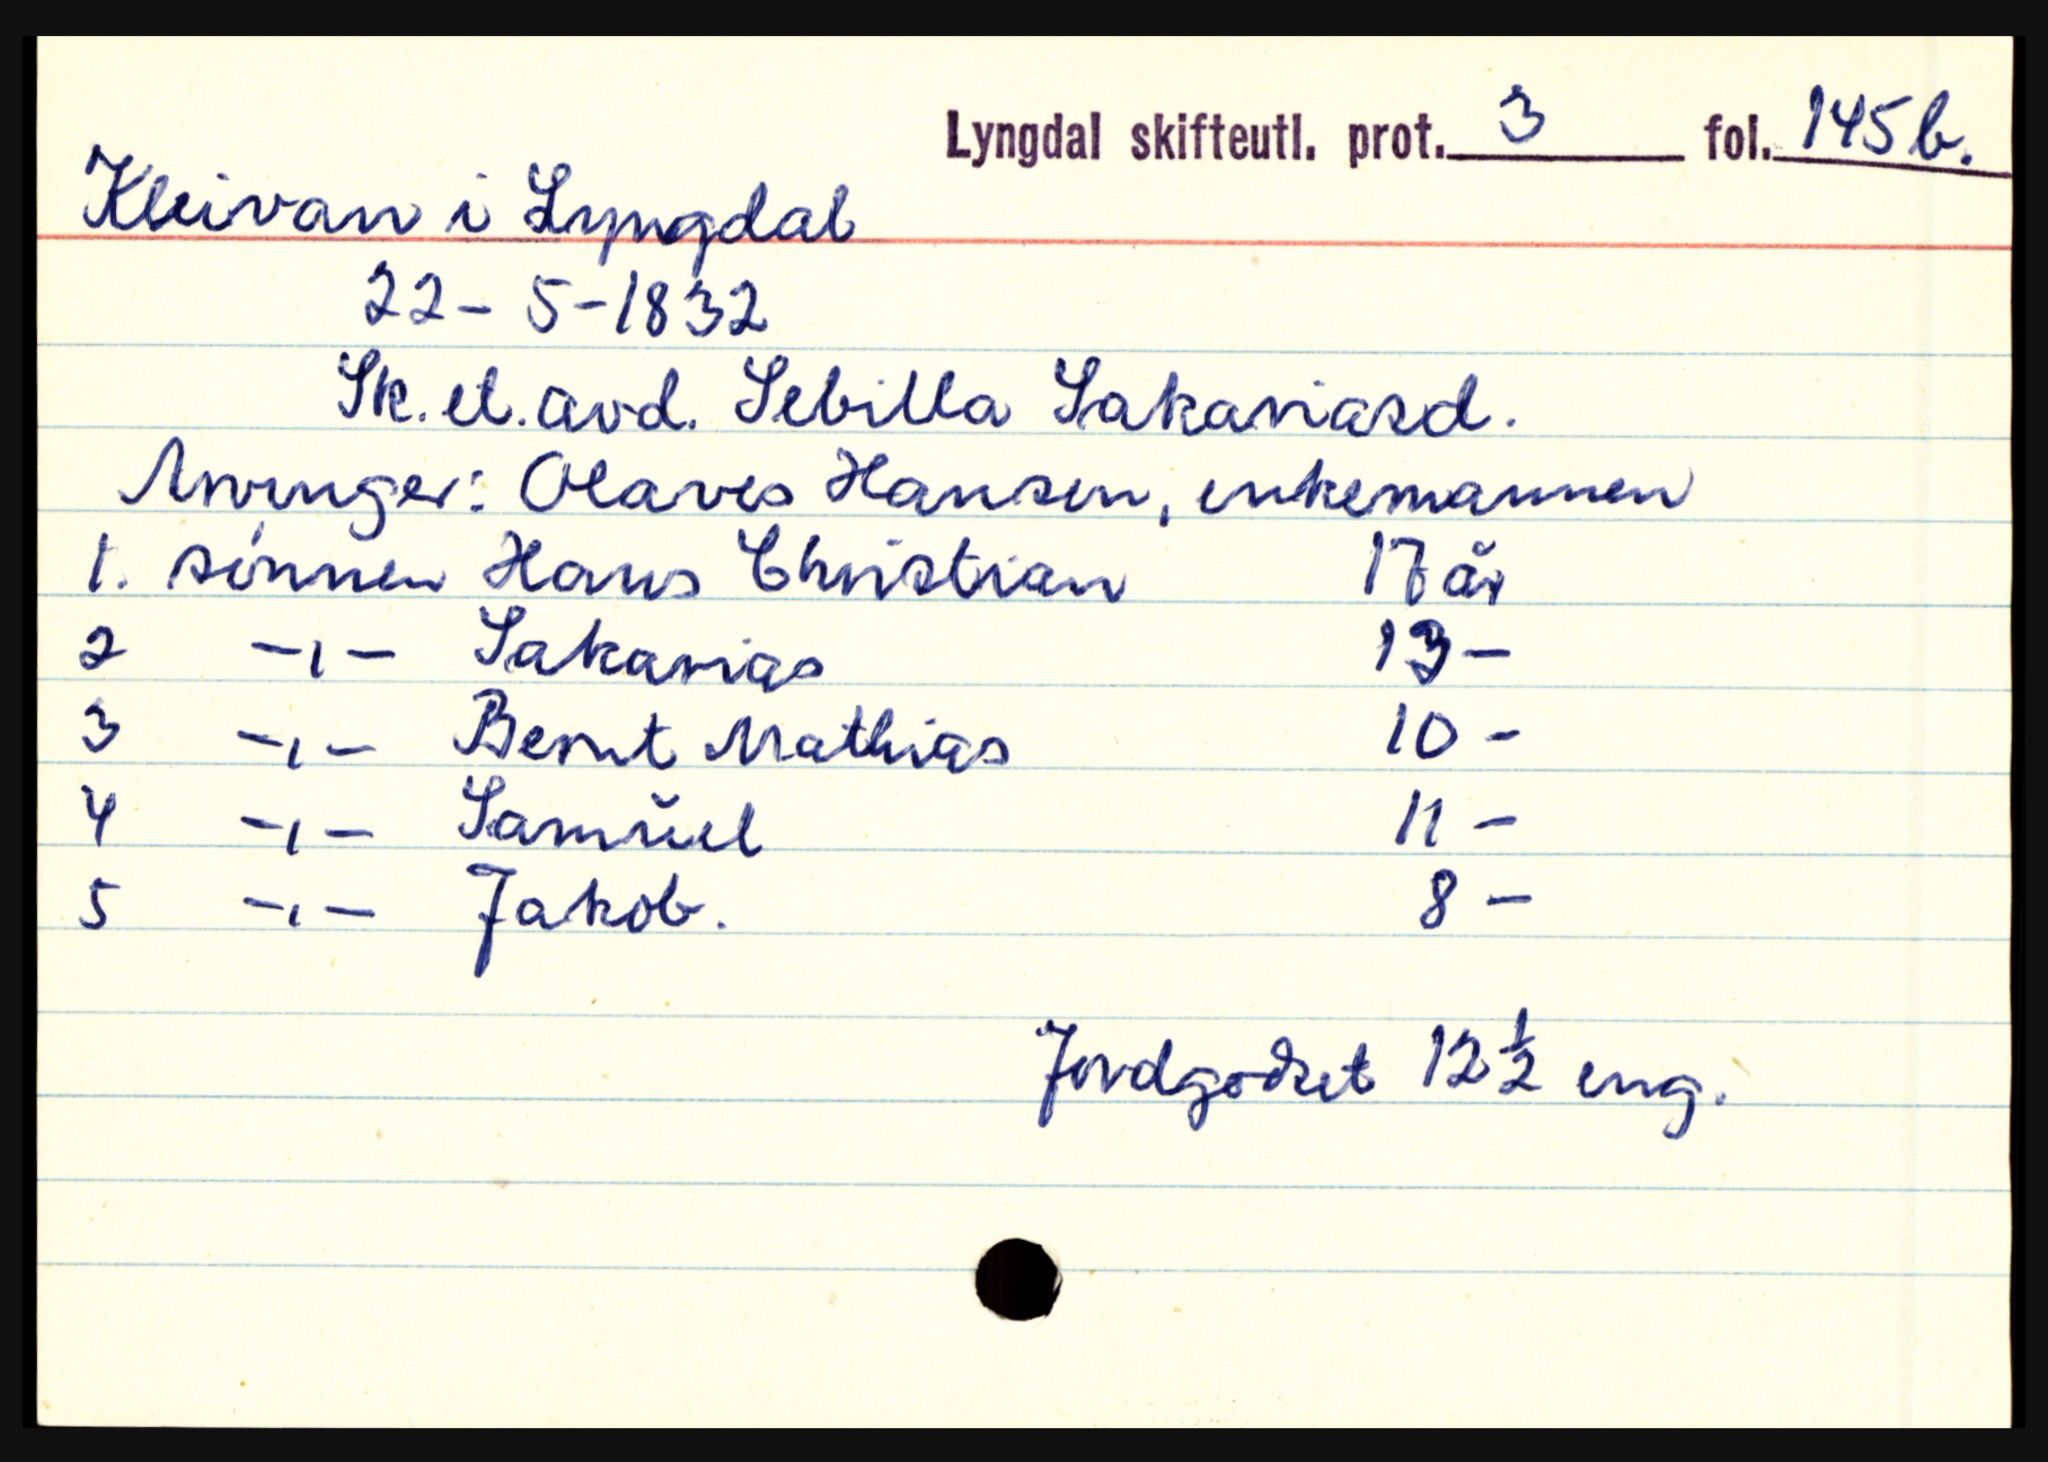 Lyngdal skifteutl. prot. 3 fol. 145 b.
Kleivan i Lyngdal
22 - 5 - 1832
Sk. et. avd. Sebilla Sakariasd.
Arvinger: Olaves Hansen, enkemannen
1. sønnen Hans Christian 17 år
2 -,,- Sakarias 13 -
3 -,,- Bernt Mathias 10 -
4 -,,- Samuel 11 -
5 -,,- Jakob. 8 -
Jordgodset 12 ½ eng.